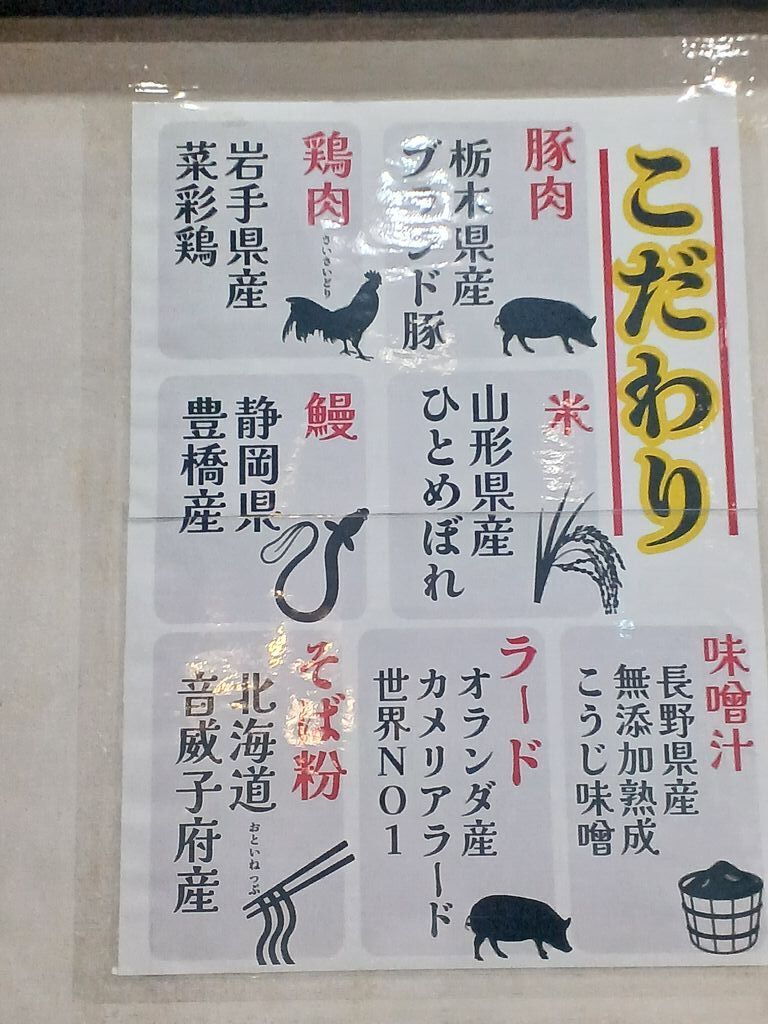 こだわり
豚肉
栃木県産
ブランド豚
鶏肉
さいさいどり
岩手県産
菜彩鶏
米
山形県産
ひとめぼれ
鰻
静岡県
豊橋産
味噌汁
長野県産
無添加熟成
こうじ味噌
ラード
オランダ産
カメリアラード
世界NO1
そば粉
北海道
おといねっぷ
音威子府産